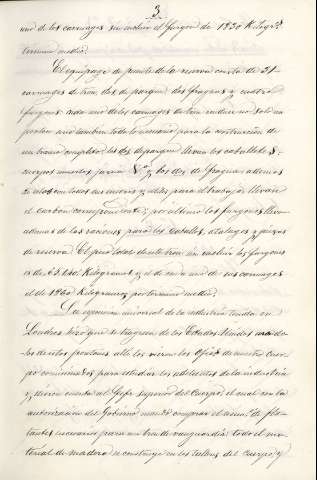 3.
uno de los carruages sin incluir el furgon de 1830 Kilogs.
termino medio.
El equipage de puente de la reserva consta de 31
carruages de tren, dos de parque dos fraguas y cuatro
furgones cada uno de los carruages de tren conduce no solo un
ponton sino tambien todo lo necesario para la construccion de
un tramo completo, los de parque llevan los caballetes,
y los dos de fraguas ademas
de estos con todos sus enseres y utiles para el trabajo llevan
el carbon correspondiente; por ultimo los furgones llevan
ademas de las raciones para los caballos, atalages y juegos
de reserva. El peso total de este tren sin incluir los furgones
es de 65.100 Kilogramos y el de cada uno de sus carruages
el de 1860 Kilogramos por termino medio.
La esposicion universal de la industria tenida en
Londres hizo que se tragesen de los Estados Unidos
los de estos pontones alli los vieron los Ofics. de nuestro cuer-
po comisionados para estudiar los adelantos de la industria
y dieron cuenta al Gefe superior del Cuerpo, el cual con la
autorizacion del Gobierno mandó comprar el numo. de flo-
tantes necesarios para un tren de vanguardia: todo el ma-
terial de madera se construyo en los talleres del cuerpo, y